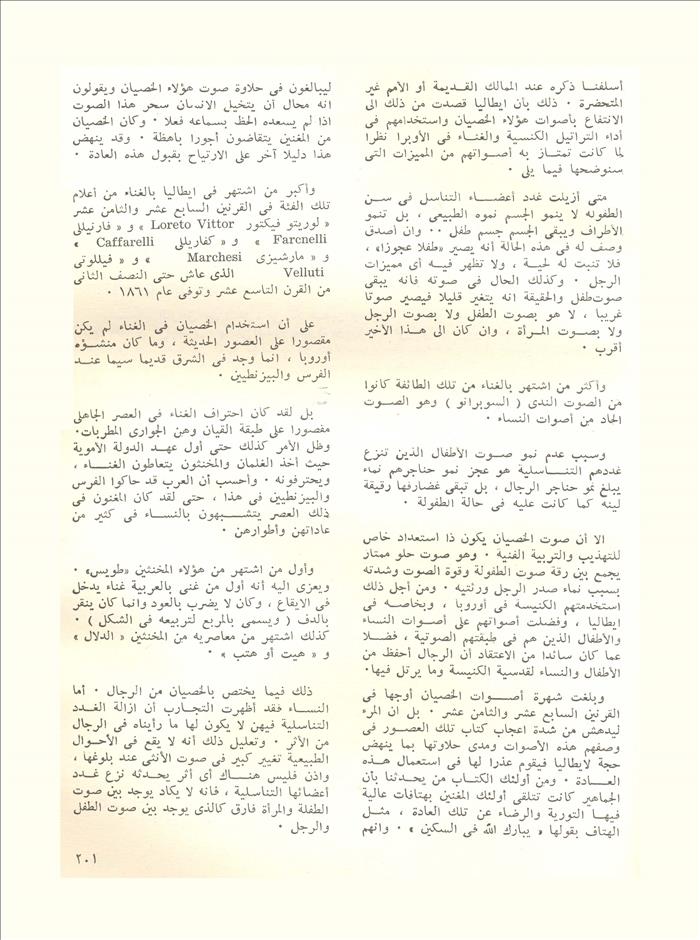 أسلفنا ذكره عند الممالك القديمة أو الأمم غير
المتحضرة ٠ ذلك بان ايطاليا قصدت من ذلك الى
الانتفاع بأصوات هؤلاء الخصيان واستخدامهم فى
أداء التراتيل الكنسية والغناء فى الأوبرا نظرا
لما كانت تمتاز به أصواتهم من المميزات التى
سنوضحها فيما يلى ٠
متى أزيلت غدد أعضاء التناسل فى سن
الطفوله لا ينمو الجسم نموه الطبيعى ، بل تنمو
الأطراف ويبقى الجسم جسم طفل ٠٠ وان أصدق
وصف له فى هذه الحالة أنه يصير «طفلا عجوزا» ،
فلا تنبت له لحية ، ولا تظهر فيه أى مميزات
الرجل ٠ وكذلك الحال فى صوته فانه يبقى
صوت طفل والحقيقة انه يتغير قليلا فيصير صوتا
غريبا ، لا هو بصوت الطفل ولا بصوت الرجل
ولا بصوت المرأة ، وان كان الى هذا الأخير
أقرب ٠
وأكثر من اشتهر بالغناء من تلك الطائفة كانوا
من الصوت الندى ( السوبرانو ) وهو الصوت
الحاد من أصوات النساء ٠
وسبب عدم نمو صوت الأطفال الذين تنزع
غددهم التناسلية هو عجز نمو حناجرهم نماء
يبلغ نمو حناجر الرجال ، بل تبقى غضارفها رقيقة
لينة كما كانت عليه فى حالة الطفولة ٠
الا أن صوت الخصيان يكون ذا استعداد خاص
للتهذيب والتربية الفنية ٠ وهو صوت حلو ممتاز
يجمع بين رقة صوت الطفولة وقوة الصوت وشدته
بسبب نماء صدر الرجل ورئتيه ٠ ومن أجل ذلك
استخدمتهم الكنيسة فى أوروبا ، وبخاصه فى
ايطاليا ، وفضلت أصواتهم على أصوات النساء
والأطفال الذين هم فى طبقتهم الصوتية ، فضلا
عما كان سائدا من الاعتقاد أن الرجال أحفظ من
الأطفال والنساء لقدسية الكنيسة وما يرتل فيها٠
وبلغت شهرة أصوات الخصيان أوجها فى
القرنين السابع عشر والثامن عشر ٠ بل ان المرء
ليدهش من شدة اعجاب كتاب تلك العصور فى
وصفهم هذه الأصوات ومدى حلاوتها بما ينهض
حجة لايطاليا فيقوم عذرا لها فى استعمال هذه
العادة ٠ ومن أولئك الكتاب من يحدثنا بأن
الجماهير كانت تتلقى أولئك المغنين بهتافات عالية
فيها التورية والرضاء عن تلك العادة ، مثل
الهتاف بقولها « يبارك الله فى السكين » ٠ وانهم
ليبالغون فى حلاوة صوت هؤلاء الخصيان ويقولون
انه محال أن يتخيل الانسان سحر هذا الصوت
اذا لم يسعده الحظ بسماعه فعلا ٠ وكان الخصيان
من المغنين يتقاضون أجورا باهظة ٠ وقد ينهض
هذا دليلا آخر على الارتياح بقبول هذه العادة ٠
وأكبر من اشتهر فى ايطاليا بالغناء من أعلام
تلك الفئة فى القرنين السابع عشر والثامن عشر
« لوريتو فيكتور Loreto Vittor » و « فارنيللى
Farcnelli » و « كفاريللى Caffarelli »
و « مارشيزى Marchesi » و « فيللوتى
Velluti الذى عاش حتى النصف الثانى
من القرن التاسع عشر وتوفى عام ١٨٦١ ٠
على أن استخدام الخصيان فى الغناء لم يكن
مقصورا على العصور الحديثة ، وما كان منشؤه
أوروبا ، انما وجد فى الشرق قديما سيما عند
الفرس والبيزنطيين ٠
بل لقد كان احتراف الغناء فى العصر الجاهلى
مقصورا على طبقة القيان وهن الجوارى المطربات٠
وظل الأمر كذلك حتى أول عهد الدولة الأموية
حيث أخذ الغلمان والمخنثون يتعاطون الغناء ،
ويحترفونه ٠ وأحسب أن العرب قد حاكوا الفرس
والبيزنطيين فى هذا ، حتى لقد كان المغنون فى
ذلك العصر يتشبهون بالنساء فى كثير من
عاداتهن وأطوارهن ٠
وأول من اشتهر من هؤلاء المخنثين «طويس» ٠
ويعزى اليه أنه أول من غنى بالعربية غناء يدخل
فى الايقاع ، وكان لا يضرب بالعود وانما كان ينقر
بالدف ( ويسمى بالمربع لتربيعه فى الشكل ) ٠
كذلك اشتهر من معاصريه من المخنثين « الدلال »
و « هيت أو هتب » ٠
ذلك فيما يختص بالخصيان من الرجال ٠ أما
النساء فقد أظهرت التجارب أن ازالة الغدد
التناسلية فيهن لا يكون لها ما رأيناه فى الرجال
من الأثر ٠ وتعليل ذلك أنه لا يقع فى الأحوال
الطبيعية تغيير كبير فى صوت الأنثى عند بلوغها ،
واذن فليس هناك أى أثر يحدثه نزع غدد
أعضائها التناسلية ، فانه لا يكاد يوجد بين صوت
الطفلة والمرأة فارق كالذى يوجد بين صوت الطفل
والرجل ٠
٢٠١